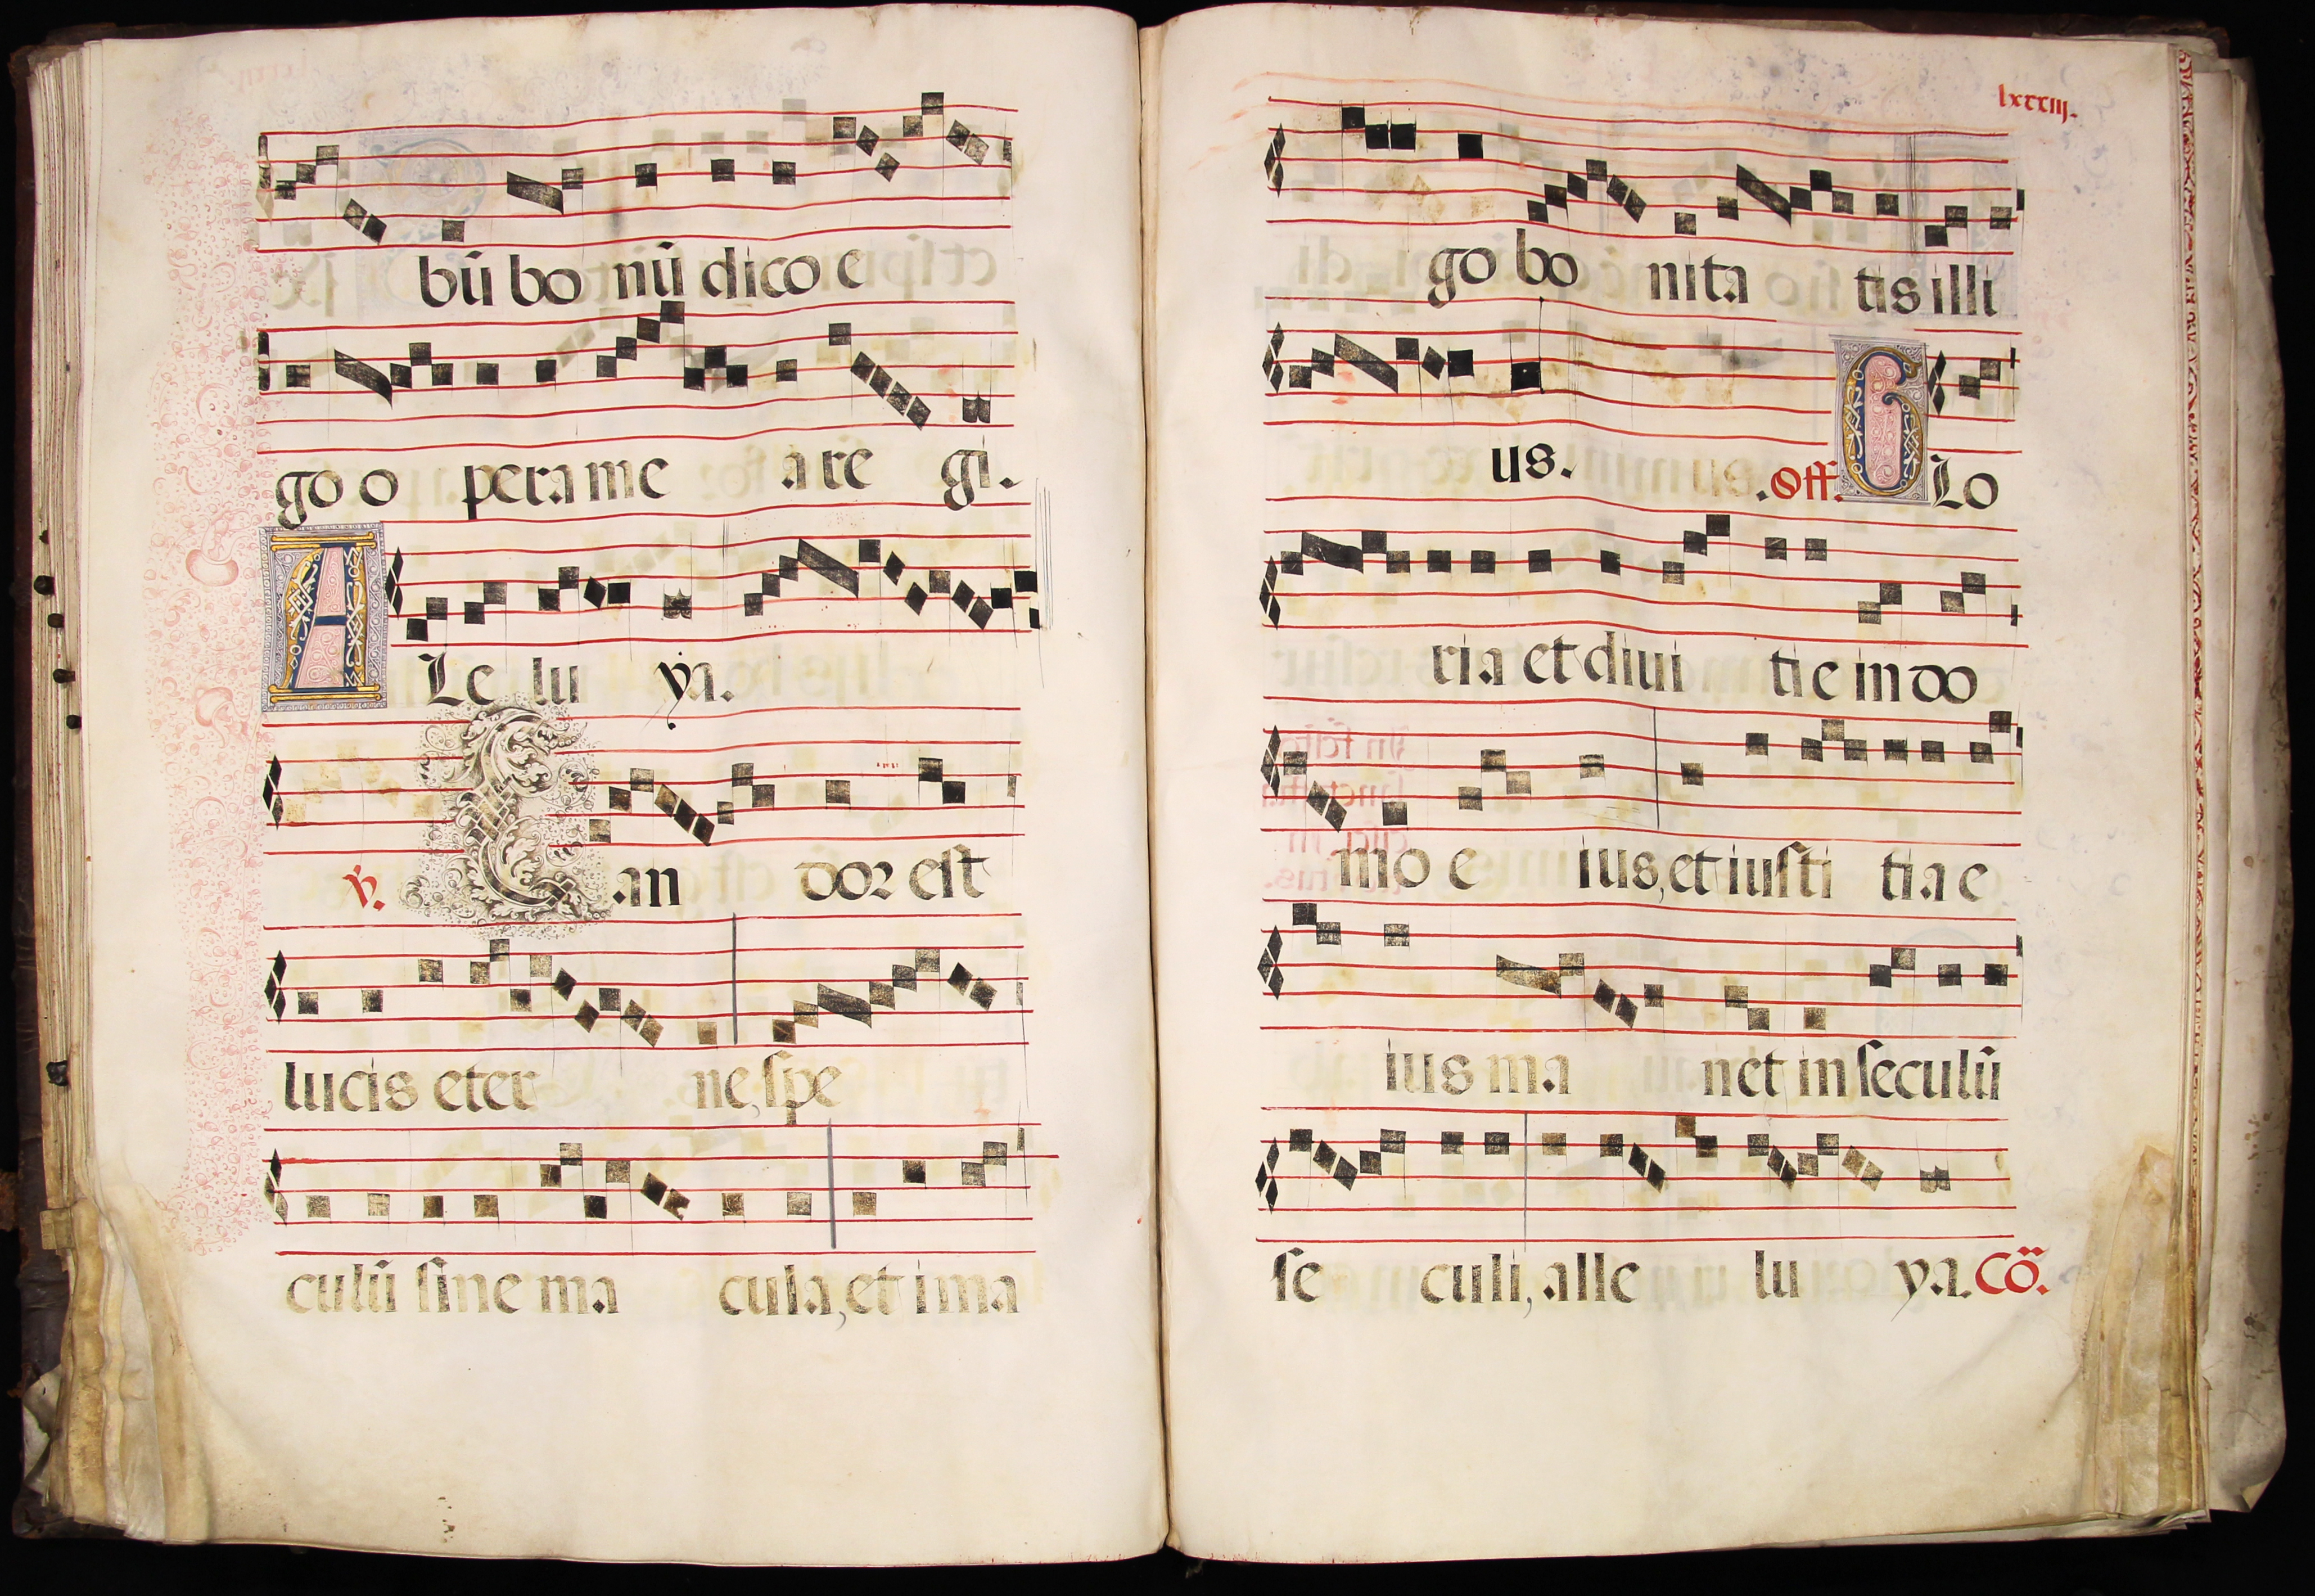 bū bo nū dico e
go o pera me a re gi.
A Le lu ya.
℣. Can dor est
lucis eter ne, spe
culū sine ma cula, et ima
lxxxiij.
go bo nita tis illi
us. Off. G Lo
ria et divi tie in do
mo e ius, et iusti tia e
ius ma net in seculū
se culi, alle lu ya. Cō.